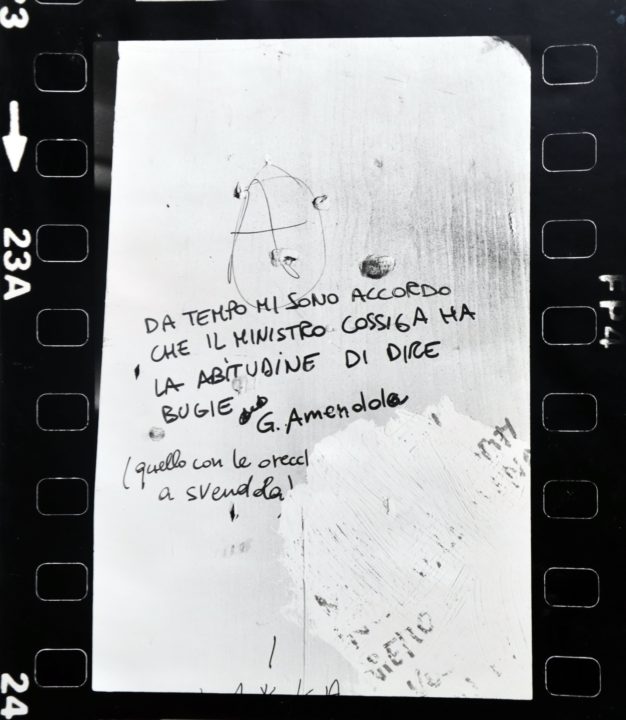 23
23A
24
FP4
DA TEMPO MI SONO ACCORDO
CHE IL MINISTRO COSSIGA HA
LA ABITUDINE DI DIRE
BUGIE
G. Amendola
(quello con le orecch
a svendola!
IELLO